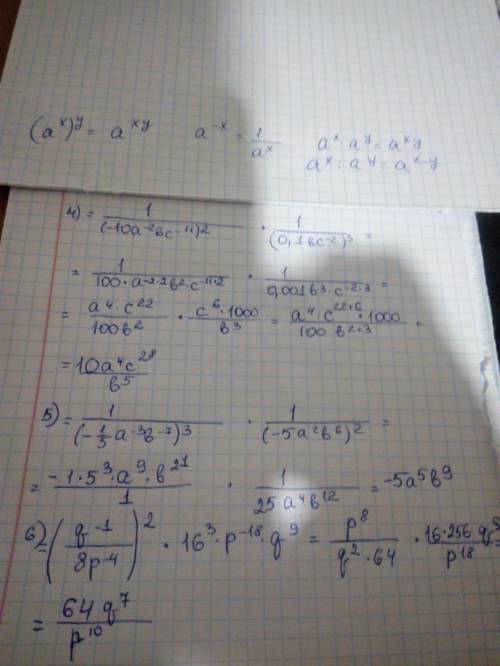 (a^x)^y = a^{xy}   a^{-x} = \frac{1}{a^x}   a^x \cdot a^y = a^{xy}
a^x : a^y = a^{x-y}
4) = \frac{1}{(-10a^{-2}bc^{-11})^2} \cdot \frac{1}{(0,1bc^{-2})^3} =
= \frac{1}{100 \cdot a^{-2 \cdot 2}b^2 \cdot c^{-11 \cdot 2}} \cdot \frac{1}{0,001b^3 \cdot c^{-2 \cdot 3}} =
= \frac{a^4 \cdot c^{22}}{100b^2} \cdot \frac{c^6 \cdot 1000}{b^3} = \frac{a^4 \cdot c^{22+6} \cdot 1000}{100 b^{2+3}} \cdot
= \frac{10a^4c^{28}}{b^5}
5) = \frac{1}{(-\frac{1}{5}a^{-3}b^{-7})^3} \cdot \frac{1}{(-5a^2b^6)^2} =
= \frac{-1 \cdot 5^3 \cdot a^9 \cdot b^{21}}{1} \cdot \frac{1}{25a^4b^{12}} = -5a^5b^9
6) = \left(\frac{q^{-1}}{8p^{-4}}\right)^2 \cdot 16^3 \cdot p^{-18} \cdot q^9 = \frac{p^8}{q^2 \cdot 64} \cdot \frac{16 \cdot 256 q^9}{p^{18}} =
= \frac{64q^7}{p^{10}}